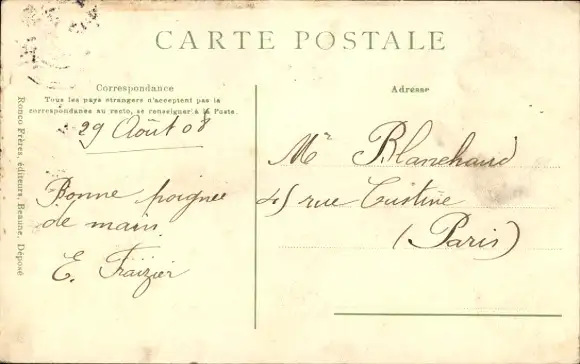 CARTE POSTALE
Correspondance
Tous les pays étrangers n'acceptent pas la
correspondance au recto, se renseigner à la Poste.
29 Août 08
Bonne poignée
de main
E. Fraizier
Adresse
Mr Blanchaud
45 rue Custine
(Paris)
Ronco Frères, éditeurs, Beaune, Déposé